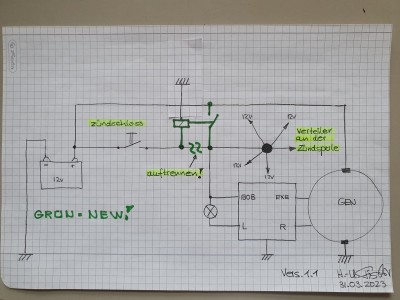 zündschloss
12V
12V
Verteiler
an der
Zündspule
12V
12V
auftrennen!
- +
12V
BOB
L
R
GEN
GRÜN = NEW!
Vers. 1.1
31.03.2023